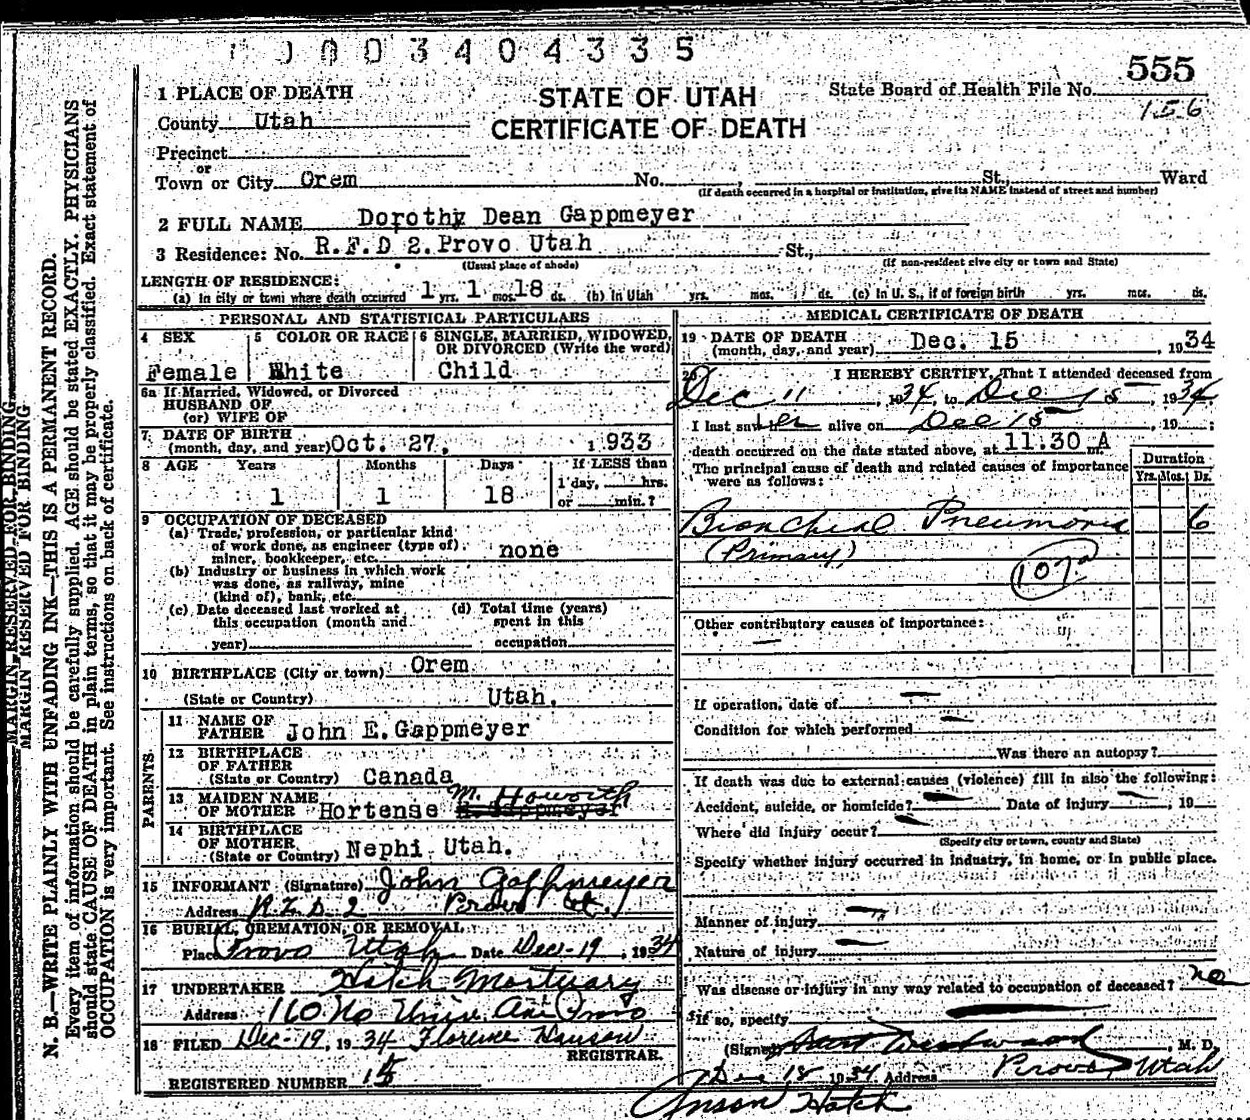 0003404335
555
1 PLACE OF DEATH
STATE OF UTAH
State Board of Health File No.
156
County Utah
CERTIFICATE OF DEATH
Precinct
or
Town or City Orem No. , St., Ward
(If death occurred in a hospital or institution, give its NAME instead of street and number)
2 FULL NAME Dorothy Dean Gappmeyer
3 Residence: No. R.F.D 2. Provo Utah St.,
(Usual place of abode) (If non-resident give city or town and State)
LENGTH OF RESIDENCE:
(a) In city or town where death occurred 1 yrs. 1 mos. 18 ds. (b) In Utah yrs. mos. ds. (c) In U. S., if of foreign birth yrs. mos. ds.
PERSONAL AND STATISTICAL PARTICULARS
4 SEX 5 COLOR OR RACE 6 SINGLE, MARRIED, WIDOWED, OR DIVORCED (Write the word)
Female White Child
6a If Married, Widowed, or Divorced
HUSBAND OF
(or) WIFE OF
7 DATE OF BIRTH
(month, day, and year) Oct. 27, 1933
8 AGE Years Months Days If LESS than
1 day, hrs.
1 1 18 or min.?
9 OCCUPATION OF DECEASED
(a) Trade, profession, or particular kind
of work done, as engineer (type of),
miner, bookkeeper, etc. none
(b) Industry or business in which work
was done, as railway, mine
(kind of), bank, etc.
(c) Date deceased last worked at (d) Total time (years)
this occupation (month and spent in this
year) occupation
10 BIRTHPLACE (City or town) Orem
(State or Country) Utah.
PARENTS
11 NAME OF
FATHER John E. Gappmeyer
12 BIRTHPLACE
OF FATHER
(State or Country) Canada
13 MAIDEN NAME M. Howorth
OF MOTHER Hortense
14 BIRTHPLACE
OF MOTHER
(State or Country) Nephi Utah.
15 INFORMANT (Signature) John Gappmeyer
Address R.F.D 2 Provo Ut.
16 BURIAL, CREMATION, OR REMOVAL
Place Provo Utah Date Dec-19, 1934
17 UNDERTAKER Hatch Mortuary
Address 160 No Univ. Ave Provo
18 FILED Dec-19, 1934 Florence Hanson
REGISTRAR.
REGISTERED NUMBER
MEDICAL CERTIFICATE OF DEATH
19 DATE OF DEATH
(month, day, and year) Dec. 15, 1934
20 I HEREBY CERTIFY, That I attended deceased from
Dec 11, 1934, to Dec 15, 1934
I last saw her alive on Dec 15, 19 ;
death occurred on the date stated above, at 11.30 A m.
The principal cause of death and related causes of importance
were as follows:
Duration
Yrs. Mos. Ds.
Bronchial Pneumonia 6
(Primary)
107
Other contributory causes of importance:
If operation, date of
Condition for which performed
Was there an autopsy?
If death was due to external causes (violence) fill in also the following:
Accident, suicide, or homicide? Date of injury , 19
Where did injury occur?
(Specify city or town, county and State)
Specify whether injury occurred in industry, in home, or in public place.
Manner of injury
Nature of injury
Was disease or injury in any way related to occupation of deceased? no
If so, specify
(Signed) , M. D.
Dec 18 1934 Address Provo, Utah
Anson Hatch
MARGIN RESERVED FOR BINDING
MARGIN RESERVED FOR BINDING
N. B.—WRITE PLAINLY WITH UNFADING INK—THIS IS A PERMANENT RECORD.
Every item of information should be carefully supplied. AGE should be stated EXACTLY. PHYSICIANS
should state CAUSE OF DEATH in plain terms, so that it may be properly classified. Exact statement of
OCCUPATION is very important. See instructions on back of certificate.